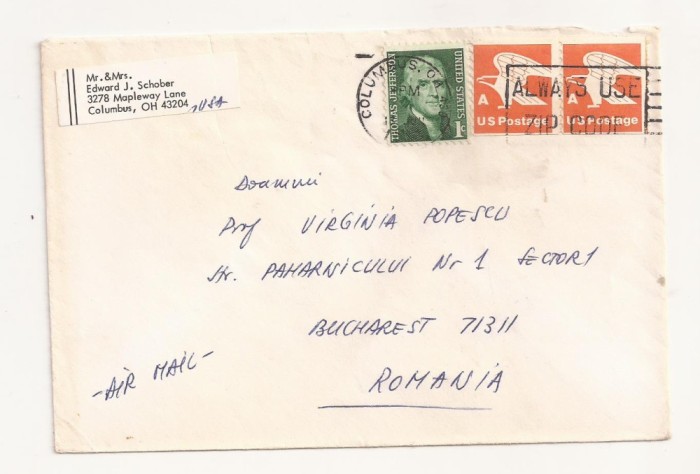 Mr. &Mrs.
Edward J. Schober
3278 Mapleway Lane
Columbus, OH 43204, USA
THOMAS JEFFERSON
UNITED STATES
1¢
A
US Postage
A
US Postage
COLUMBUS, OH
M
ALWAYS USE
ZIP CODE
Doamnei
Prof VIRGINIA POPESCU
Str. PAHARNICULUI Nr 1 SECTOR 1
BUCHAREST 71311
ROMANIA
-AIR MAIL-